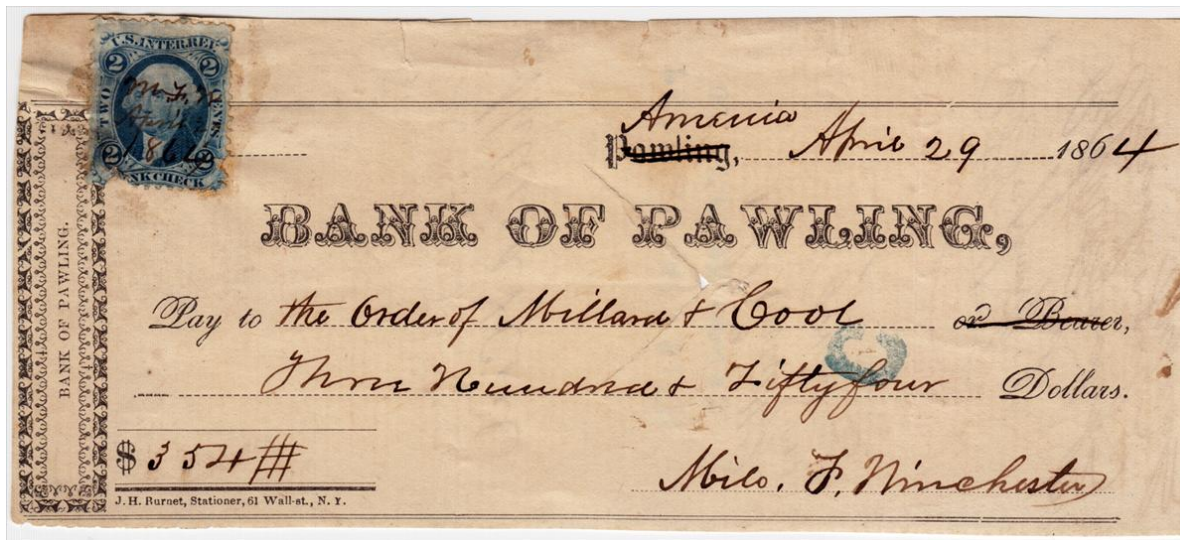 U.S. INTER. REV.
2 2
TWO CENTS
M. F. W.
April
1864
2 2
BANK CHECK
Amenia
Pawling, April 29 1864
BANK OF PAWLING.
BANK OF PAWLING,
Pay to the Order of Millard & Cook or Bearer,
Three Hundred & Fifty four Dollars.
$ 354
Milo. F. Winchester
J. H. Burnet, Stationer, 61 Wall-st., N. Y.